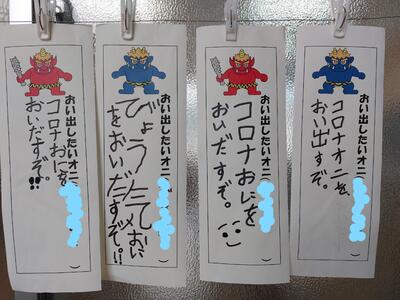 おい出したいオニ
コロナオニを、
おい出すぞ。
おい出したいオニ
コロナおにを
おいだすぞ。
おい出したいオニ
おに
をおいだすぞ。!!
おい出したいオニ
コロナおにを
おいだすぞ。!!